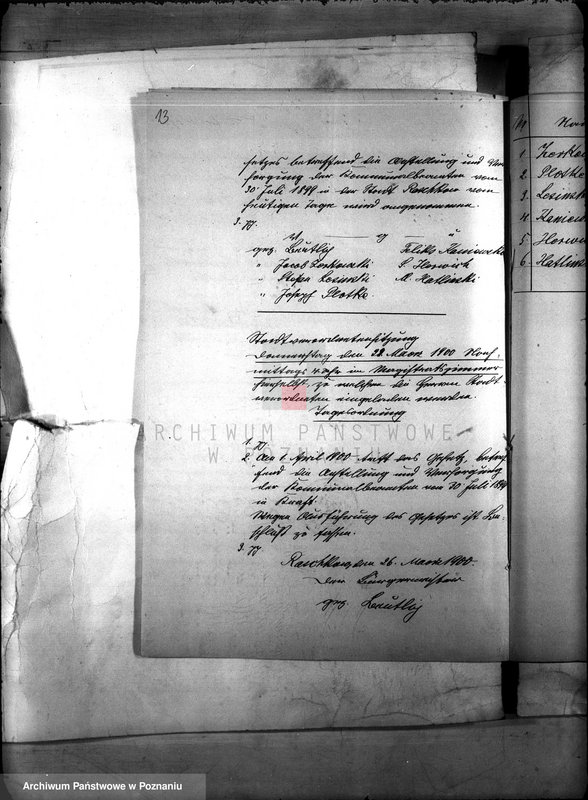 13
setzes betreffend die Anstellung und Ver-
sorgung der Kommunalbeamten vom
30. Juli 1899 in der Stadt Raschkow vom
heutigen Tage wird angenommen.
3. pp.
v. g. u.
gez. Feliks
" Jacob S. Horwitz
" Stefan Losinski M. Hatlinski
" Josef Plotke
Stadtverordnetensitzung
Donnerstag den 29. Maerz 1900 Nach-
mittags Uhr im Magistratszimmer
hierselbst, zu welcher die Herren Stadt-
verordneten eingeladen werden.
Tagesordnung
1. pp.
2. Am 1. April 1900 tritt das Gesetz, betref-
fend die Anstellung und Versorgung
der Kommunalbeamten vom 30 Juli 1899
in Kraft.
Wegen Ausführung des Gesetzes ist Be-
schluß zu fassen.
3. pp
Raschkow, den 26. Maerz 1900.
Der Bürgermeister
gez.
1
2 Plotke
3 Losinski
4
5 Horwitz
6 Hatlinski
ARCHIWUM PAŃSTWOWE
W POZNANIU
Archiwum Państwowe w Poznaniu